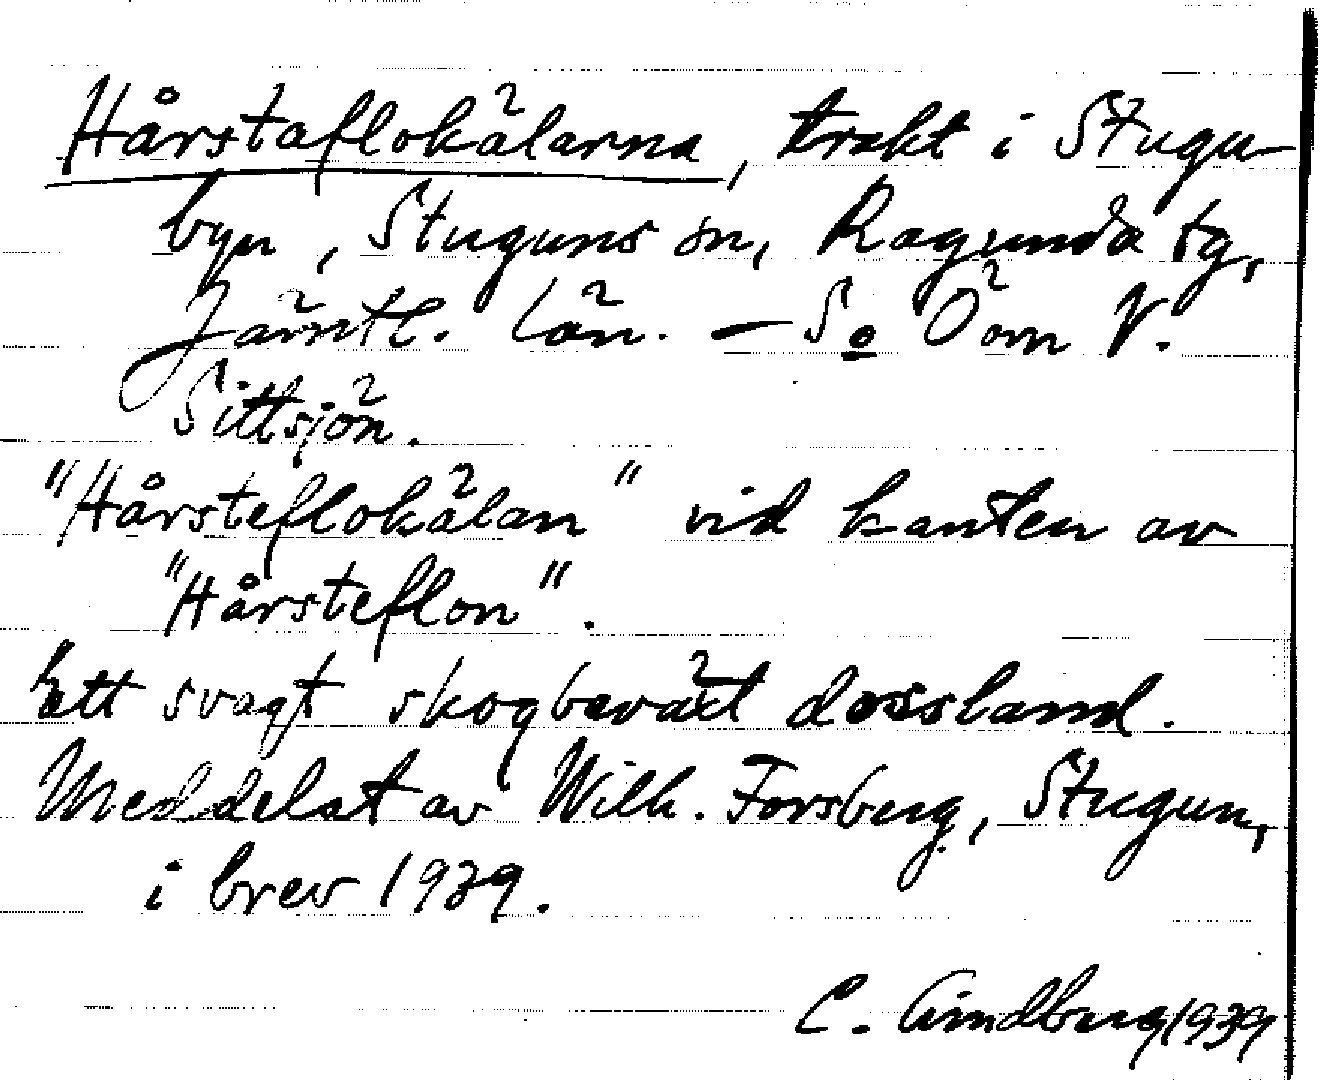 Hårstaflokälarna, trakt i Stugu-
byn, Stuguns sn, Ragunda tg,
Jämtl. län. — So Öom V.
Sittsjön.
"Hårsteflokälan" vid kanten av
"Hårsteflon".
Ett svagt skogbeväxt dossland.
Meddelat av Wilh. Forsberg, Stugun,
i brev 1939.
C. Lindberg 1939